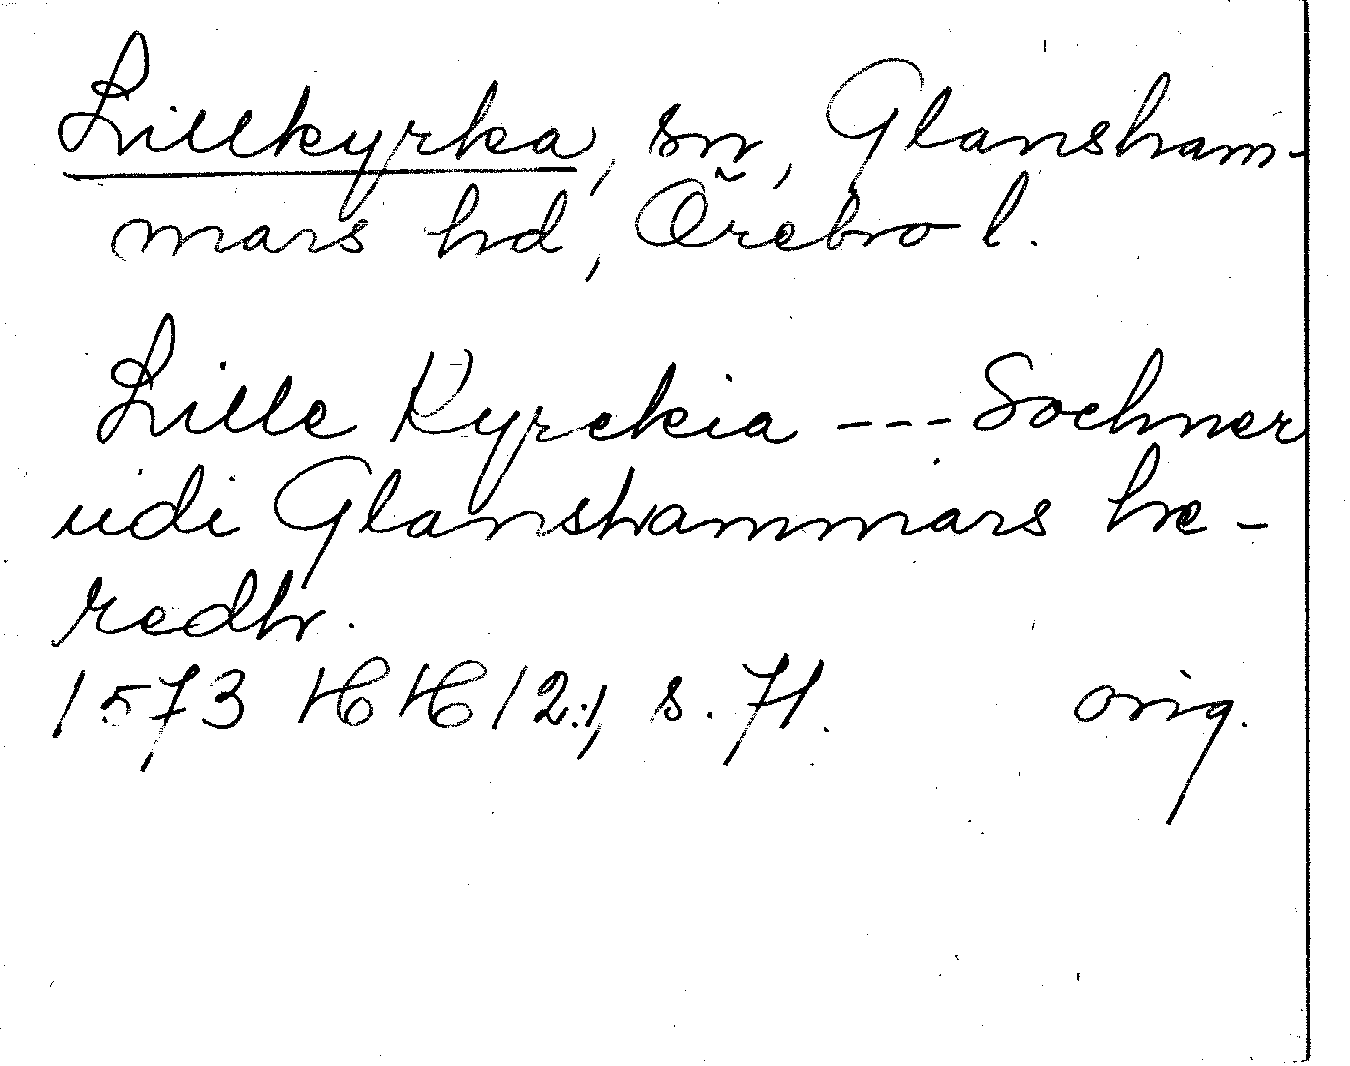 Lillkyrka, sn, Glansham-
mars hd, Örebro l.
Lille Kyrckia --- Sochner
udi Glanshammars he-
redh.
1573 HH 12:1, s. 71. orig.